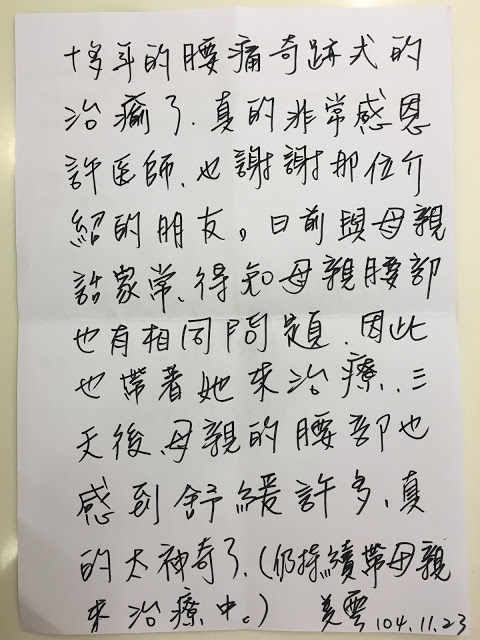 十多年的腰痛奇跡式的
治癒了.真的非常感恩
許医師.也謝謝那位介
紹的朋友。日前與母親
話家常.得知母親腰部
也有相同問題.因此
也帶著她來治療.三
天後.母親的腰部也
感到舒緩許多.真
的太神奇了.(仍持續帶母親
來治療中。) 美雲 104.11.23